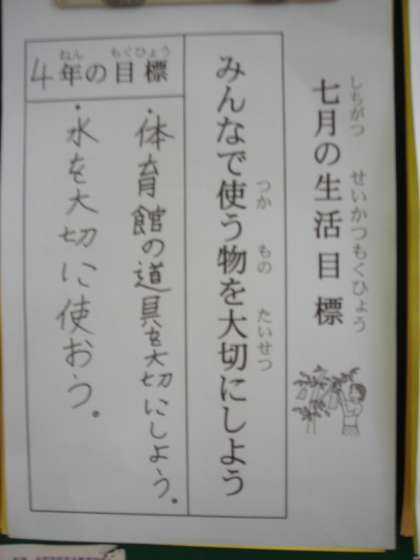 七月の生活目標
しちがつ せいかつもくひょう
みんなで使う物を大切にしよう
つか もの たいせつ
4年の目標
ねん もくひょう
・体育館の道具を大切にしよう。
・水を大切に使おう。